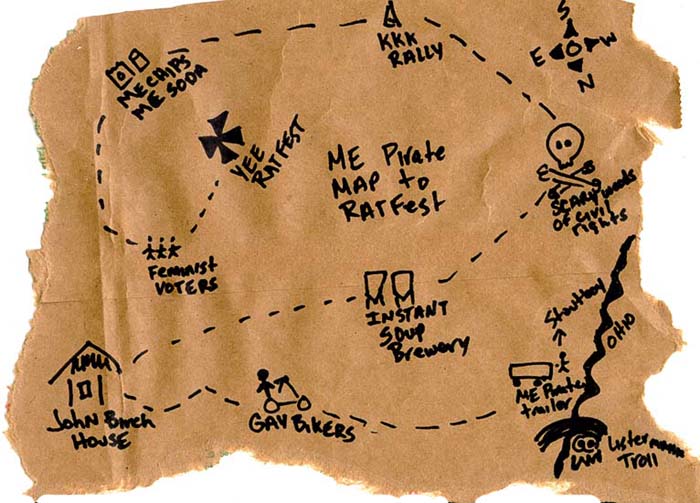 S
E W
N
ME CHIPS
ME SODA
KKK
RALLY
YEE
RATFEST
ME Pirate
MAP to
RATFest
SCARY woods
OF civil
rights
Feminist
VOTERS
INSTANT
SOUP
Brewery
OHIO
ME Pirate
trailer
John Birch
HOUSE
GAY BIKERS
Listermann
Troll